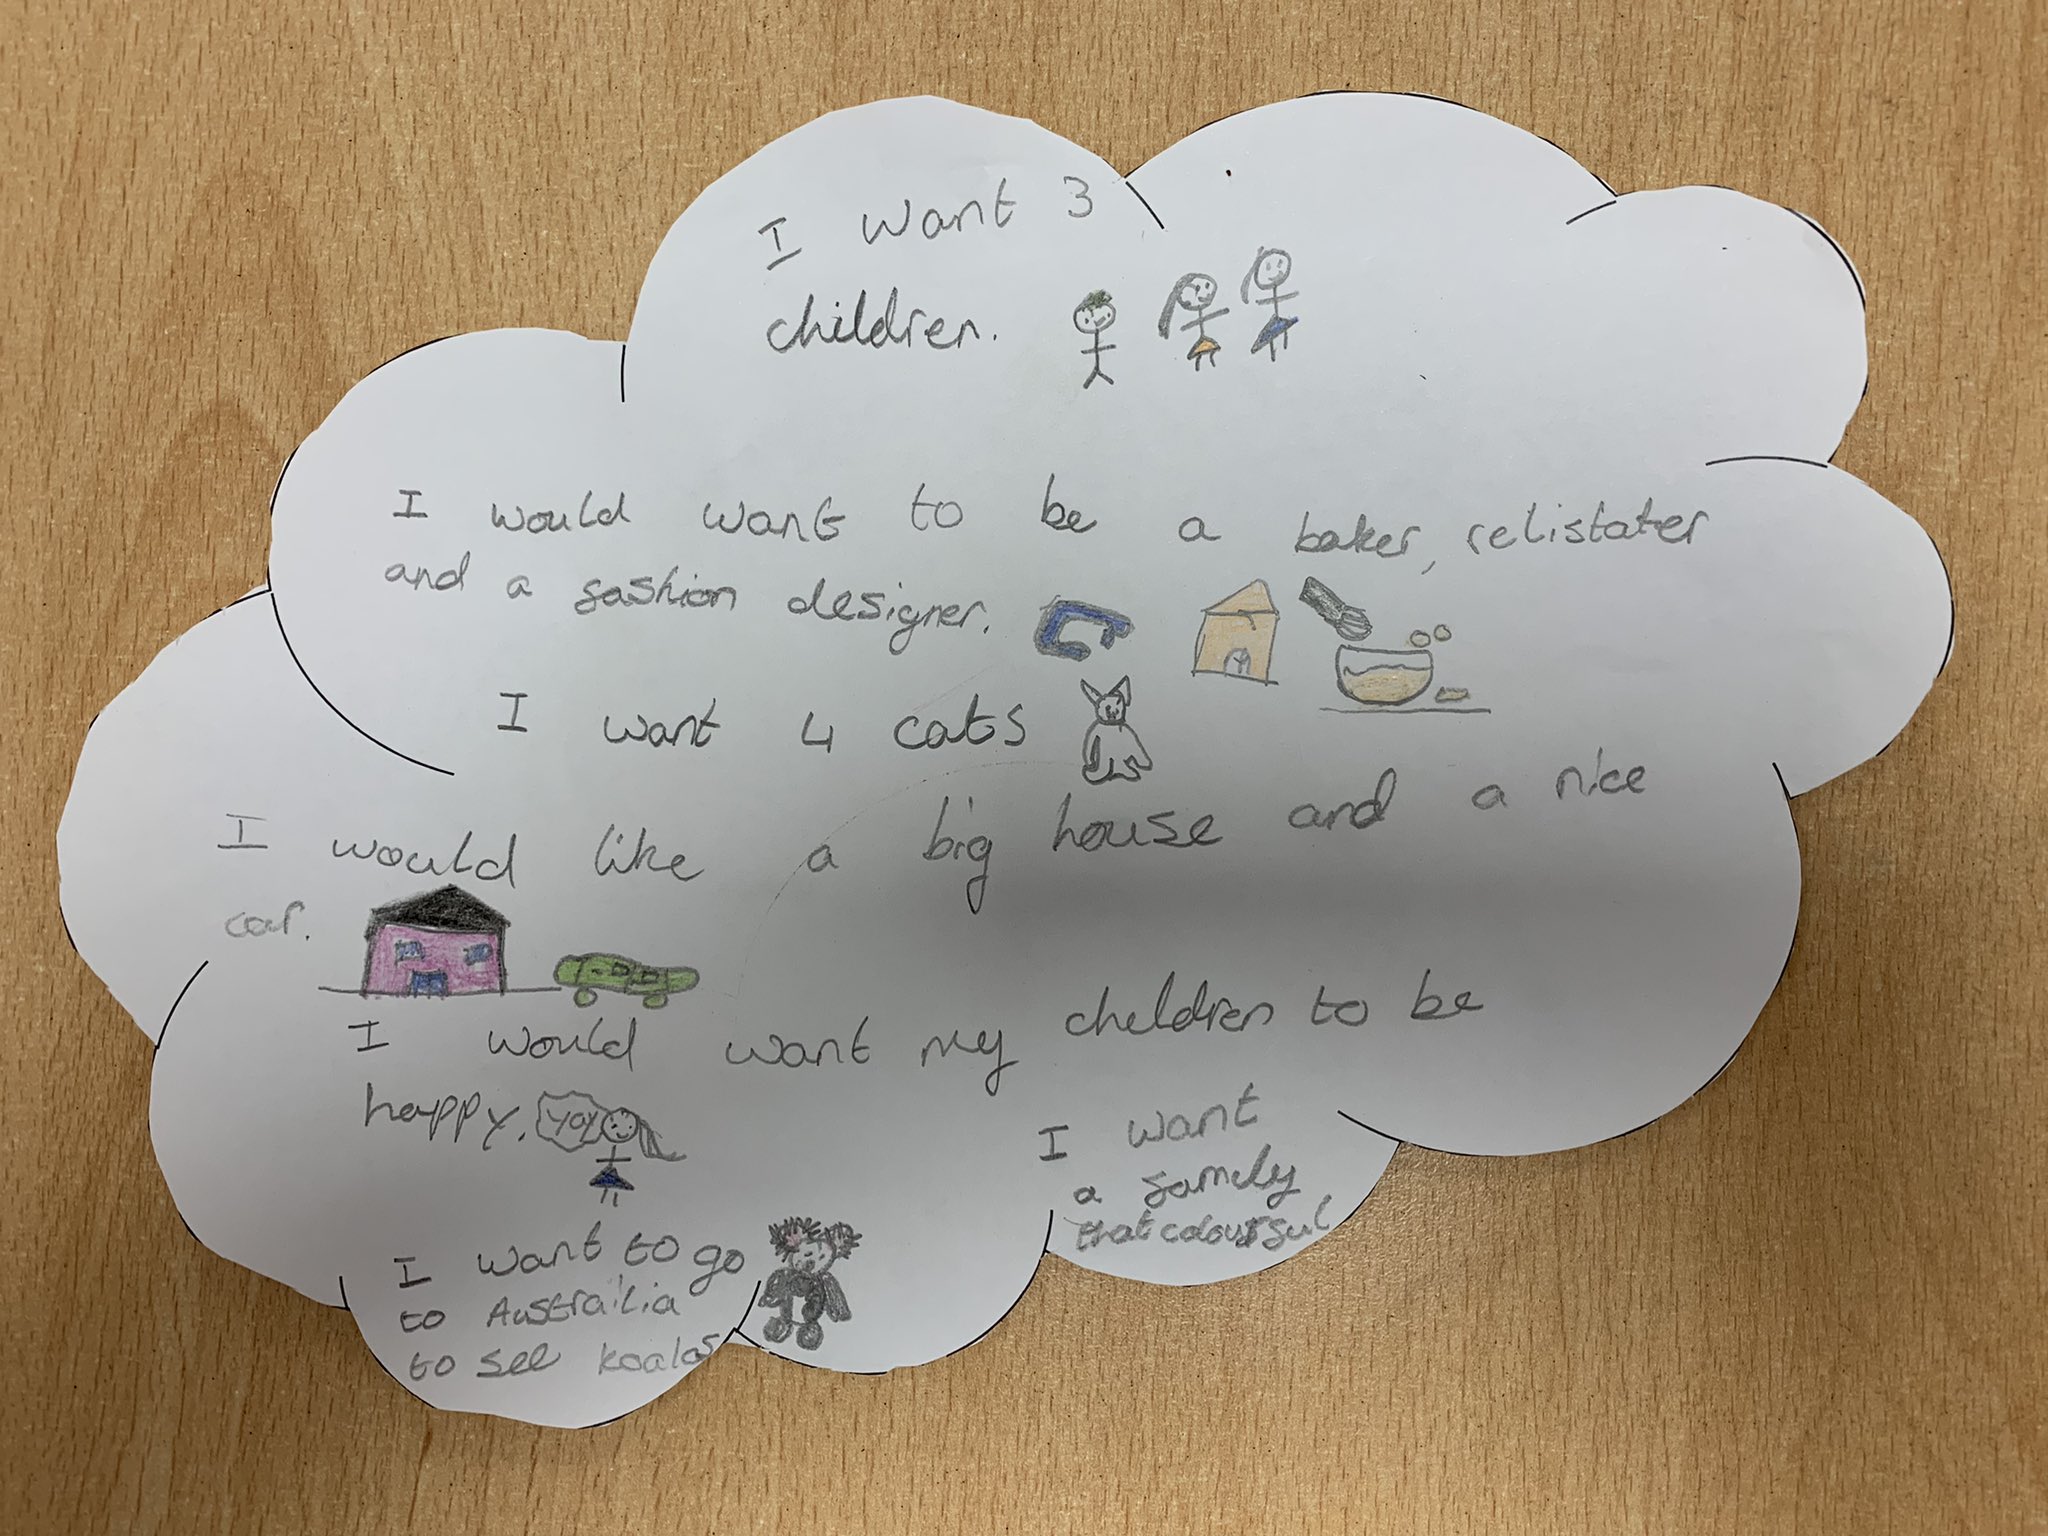 I want 3
children.
I would want to be a baker, relistater
and a fashion designer.
I want 4 cats
I would like a big house and a nice
car.
I would want my cheldren to be
happy.
yay
I want
a famely
that colourful
I want to go
to Austrailia
to see koalas